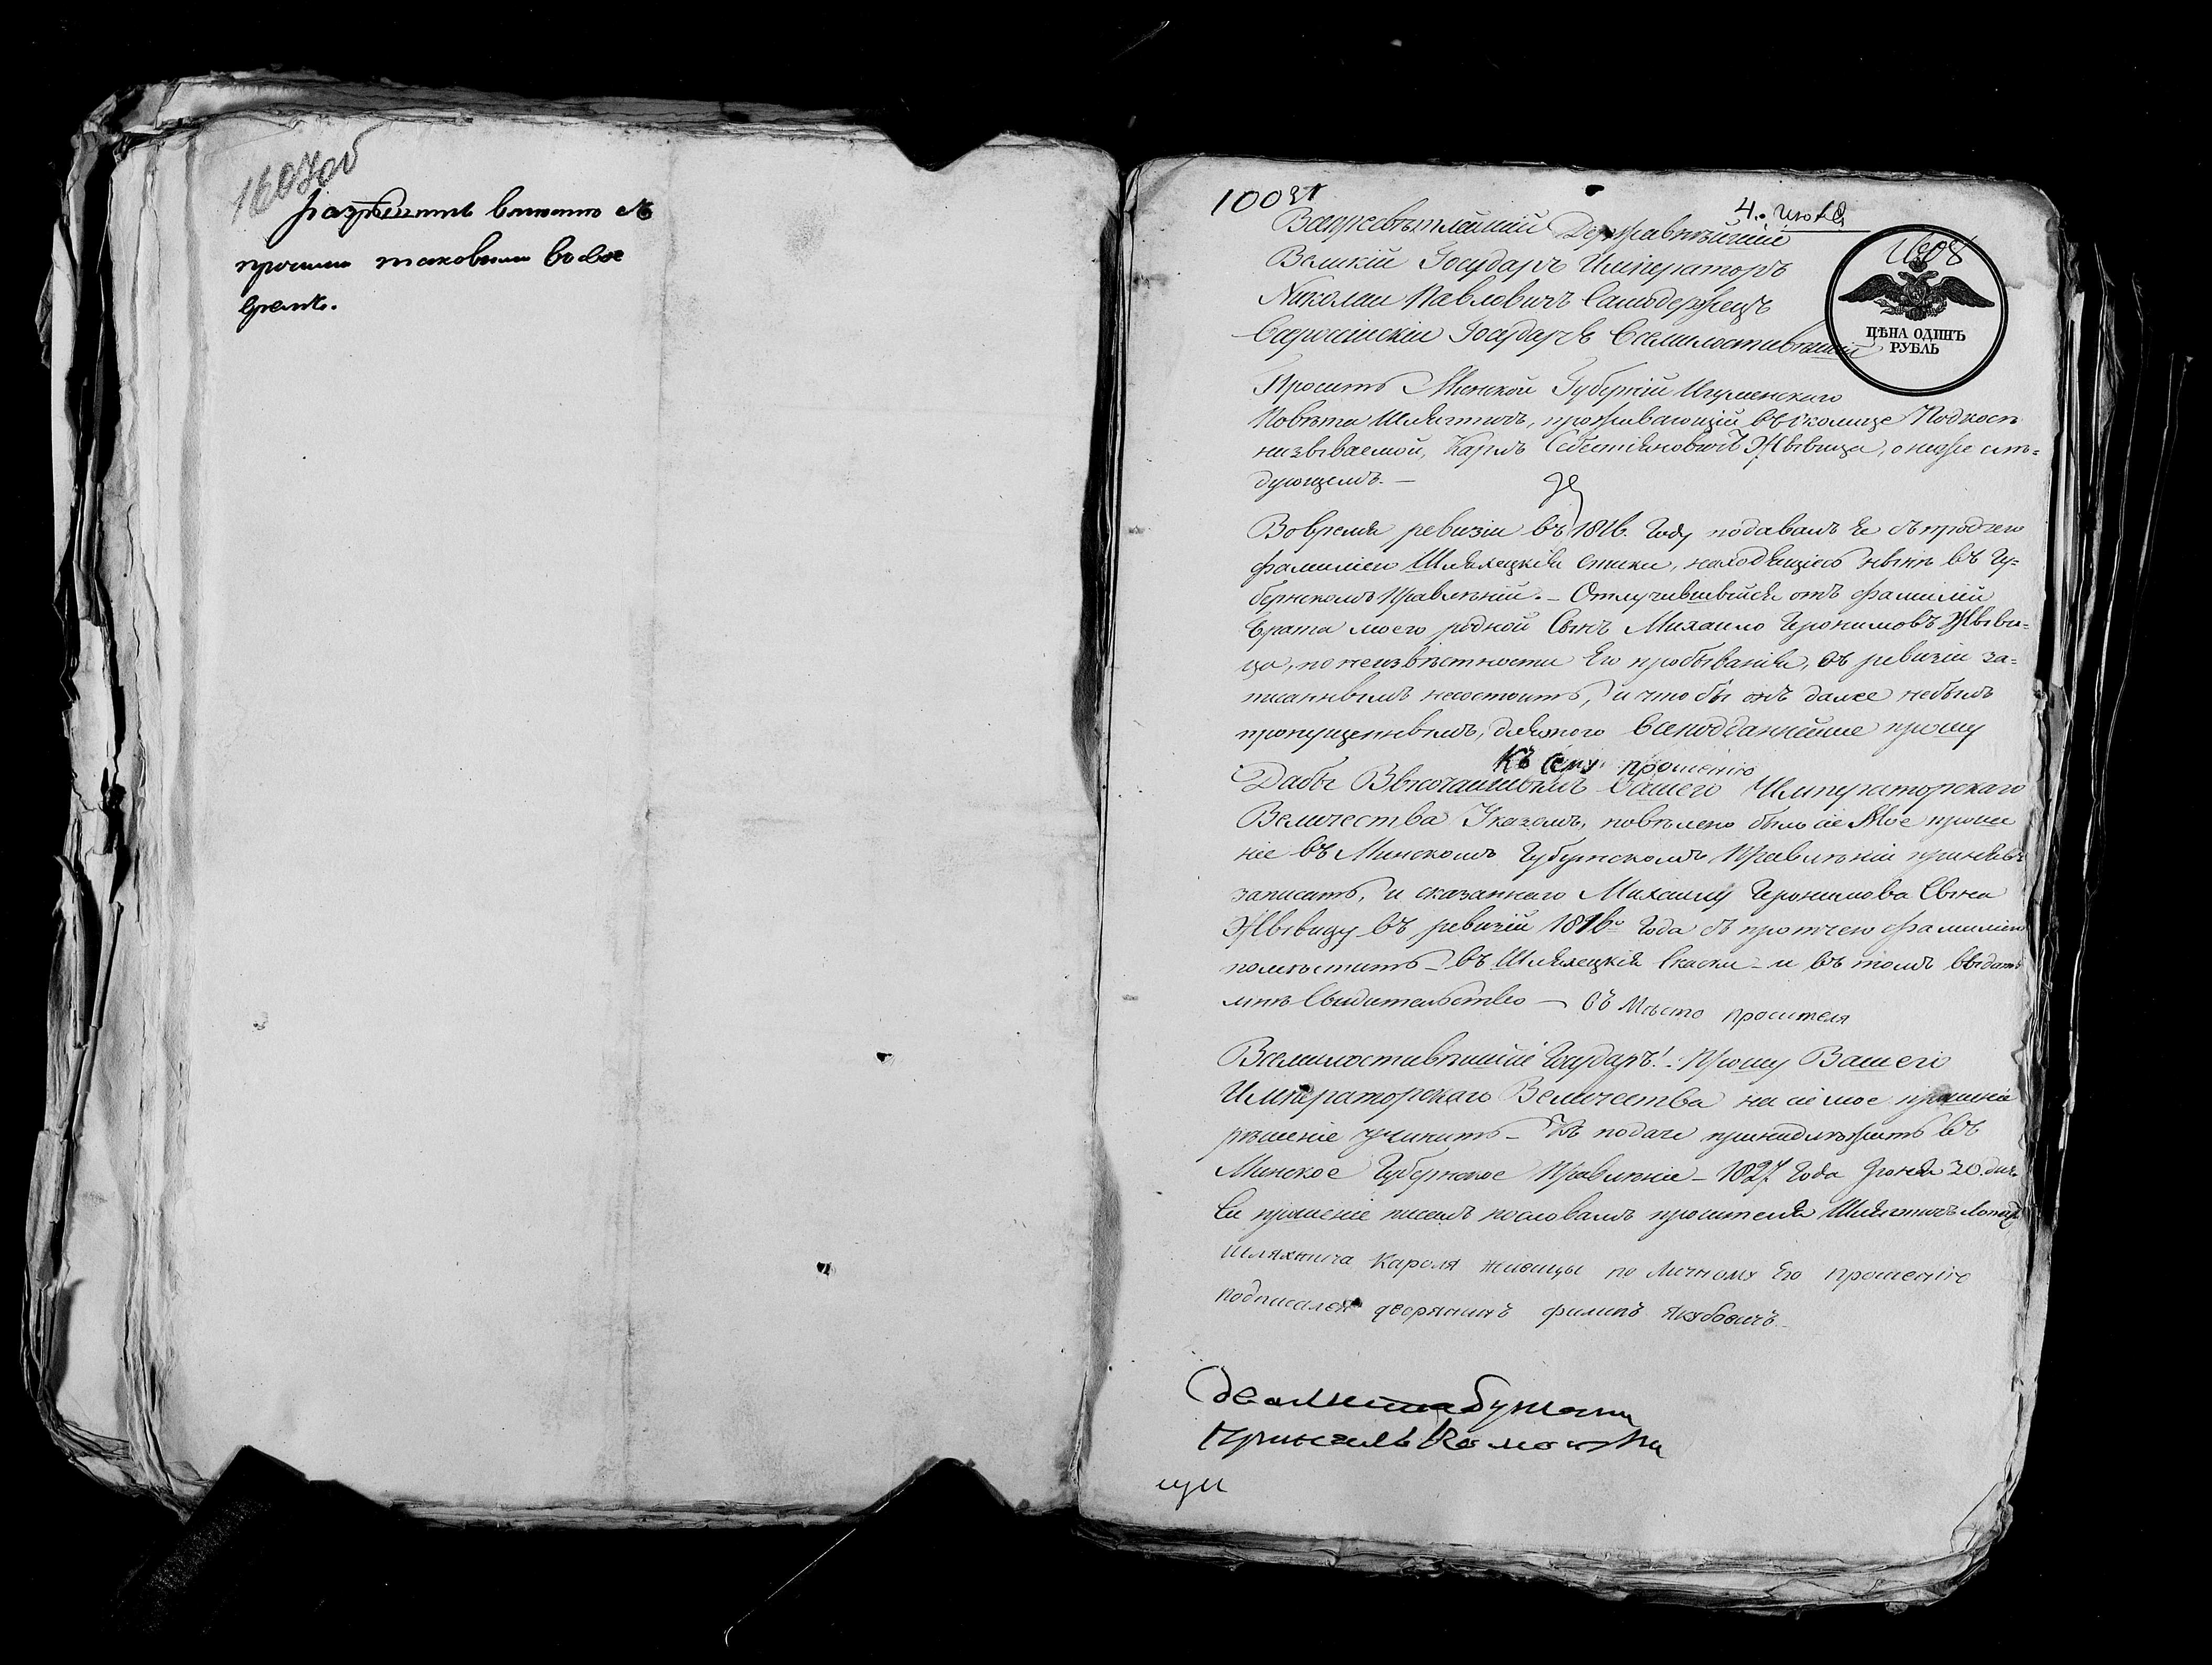 1607об
разрешить вместе съ
прочими таковыми въ свое
время.
10031
4. июля
1608
ЦѢНА ОДИНЪ
РУБЛЬ
Всепресвѣтлейшій Державнѣйшій
Великій Государь Императоръ
Николай Павловичъ Самодержецъ
Всеросійскій Государь Всемилостивѣйшій
Проситъ Минской Губерніи Игуменскаго
Повѣта Шляхтичь, проживающій въ Околице
называемой, Карлъ Себестіановичъ Жывица, о ниже слѣ=
дующемъ. —
Во время ревизіи въ 1816. Году подавалъ я съ прочею
фамиліею Шляхецкія скаски, находящіеся нынѣ въ Гу=
бернскомъ Правленіи. – Отлучившійся отъ фамиліи
брата моего родной Сынъ Михайло Іеронимовъ Жыви=
ца, по неизвѣстности Его пребыванія, въ ревизіи за=
писаннымъ несостоитъ, и что бы онъ далее небылъ
пропущеннымъ, для того Всеподданнейше прошу
Къ сему прошенію
Дабы Высочайшимъ Вашего Императорскаго
Величества Указомъ, повѣлено было сіе Мое проше
ніе въ Минскомъ Губернскомъ Правленіи принявъ
записать, и сказаннаго Михайлу Іеронимова Сына
Жывицу въ ревизіи 1816го Года съ протчею фамиліею
помѣстить – въ Шляхецкія Скаски – и въ томъ выдать
мнѣ Свидительство — въ Мѣсто просителя
Всемилостивѣйшій Государь! Прошу Вашего
Императорскаго Величества на сіе мое прошеніе
рѣшеніе учинить – Къ подаче принадлежитъ въ
Минское Губернское Правленіе – 1827 Года Іюня 30. дня
Сіе прошеніе писалъ пословамъ просителя Шляхтичь
шляхтича Кароля Живицы по Личному Его прошенію
подписался дворянинъ филипъ Якубовичъ